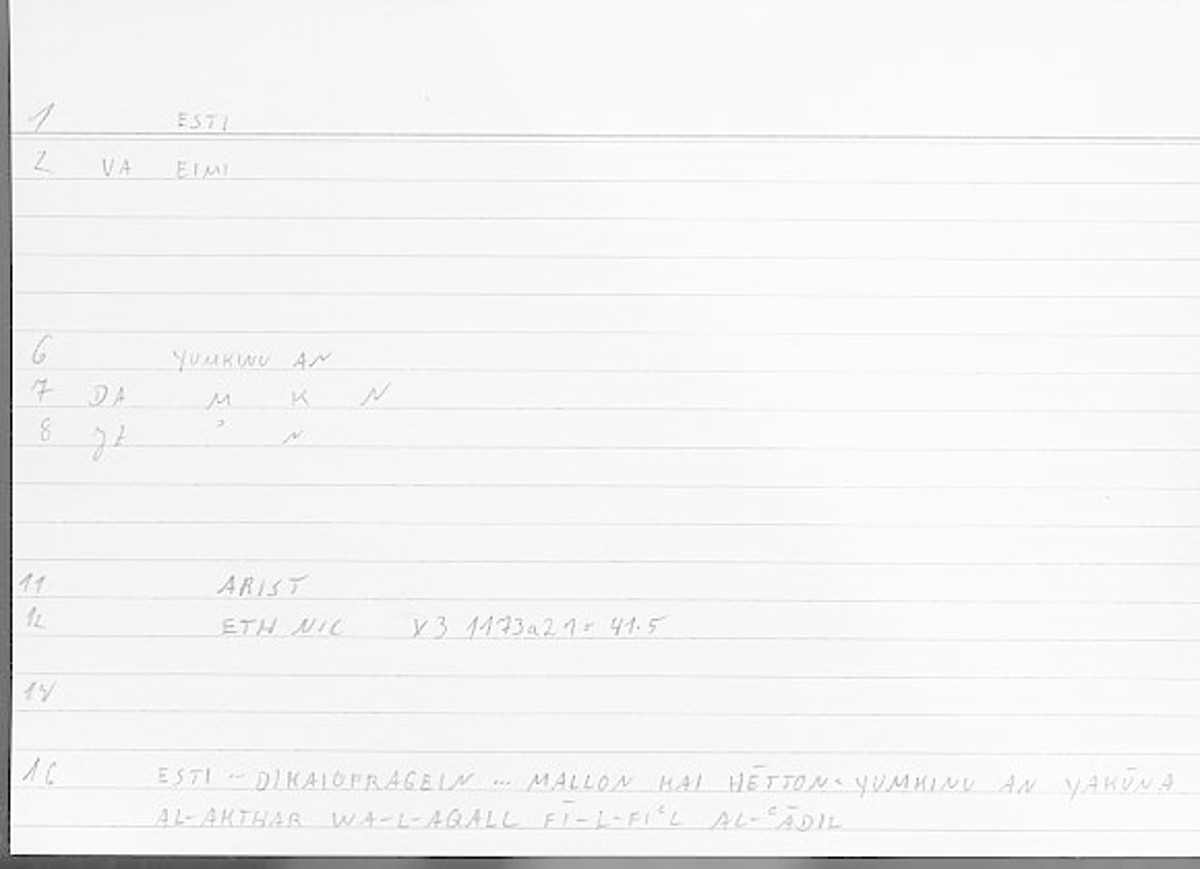 1 ESTI
2 VA EIMI
6 YUMKINU AN
7 DA M K N
8 ʾ N
11 ARIST
12 ETH NIC X3 1173a21 = 41.5
16 ESTI ~ DIKAIOPRAGEIN ... MALLON KAI HĒTTON = YUMKINU AN YAKŪNA
AL-AKTHAR WA-L-AQALL FĪ-L-FIʿL AL-ʿĀDIL